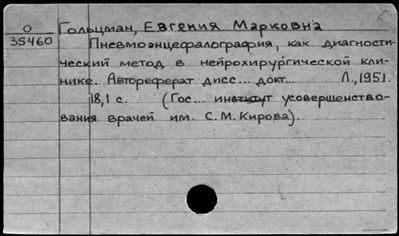 О
35460
Гольцман, Евгения Марковна
Пневмоэнцефалография, как диагности-
ческий метод в нейрохирургической кли-
нике. Автореферат дисс... докт... Л., 1951.
18,1 с. (Гос... институт усовершенство-
вания врачей им. С.М. Кирова).